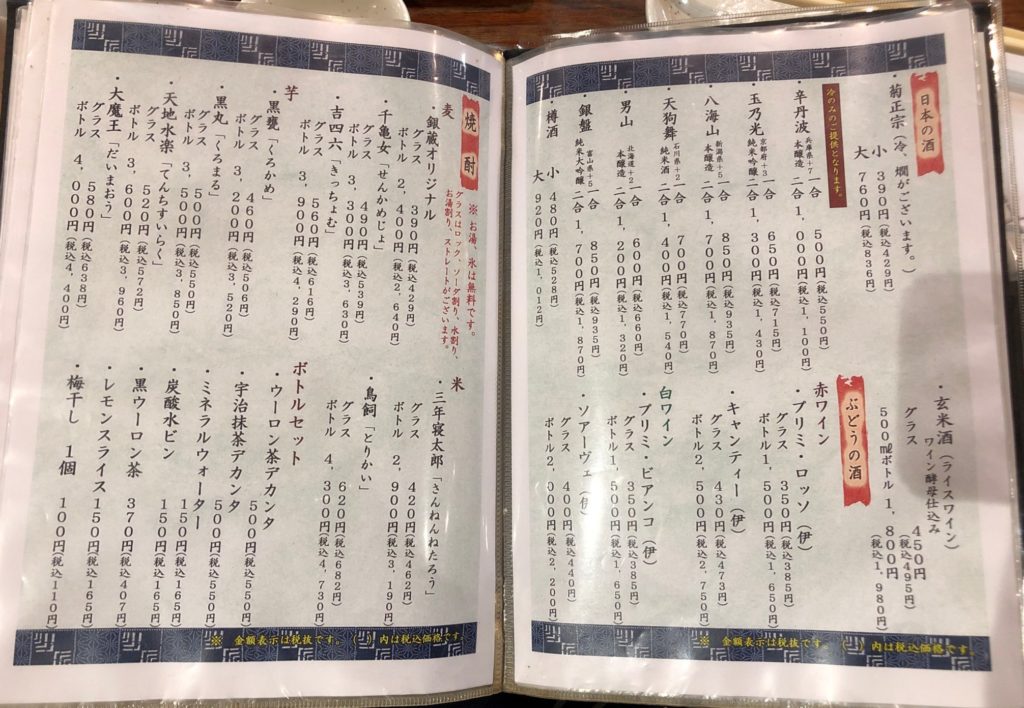 日本の酒
・菊正宗（冷、燗がございます。）
小 390円（税込429円）
大 760円（税込836円）
冷のみのご提供となります。
・辛丹波 兵庫県+7 本醸造
一合 500円（税込550円）
二合 1,000円（税込1,100円）
・玉乃光 京都府+3 純米吟醸
一合 650円（税込715円）
二合 1,300円（税込1,430円）
・八海山 新潟県+5 本醸造
一合 850円（税込935円）
二合 1,700円（税込1,870円）
・天狗舞 石川県+2 純米酒
一合 700円（税込770円）
二合 1,400円（税込1,540円）
・男山 北海道+2 本醸造
一合 600円（税込660円）
二合 1,200円（税込1,320円）
・銀盤 富山県+5 純米大吟醸
一合 850円（税込935円）
二合 1,700円（税込1,870円）
・樽酒
小 480円（税込528円）
大 920円（税込1,012円）
・玄米酒（ライスワイン）
ワイン酵母仕込み
グラス 450円（税込495円）
500㎖ボトル 1,800円（税込1,980円）
ぶどうの酒
赤ワイン
・プリミ・ロッソ（伊）
グラス 350円（税込385円）
ボトル1,500円（税込1,650円）
・キャンティー（伊）
グラス 430円（税込473円）
ボトル2,500円（税込2,750円）
白ワイン
・プリミ・ビアンコ（伊）
グラス 350円（税込385円）
ボトル1,500円（税込1,650円）
・ソアーヴェ（伊）
グラス 400円（税込440円）
ボトル2,000円（税込2,200円）
※ 金額表示は税抜です。（ ）内は税込価格です。
焼酎
※ お湯、氷は無料です。
グラスはロック、ソーダ割り、水割り、
お湯割り、ストレートがございます。
麦
・銀蔵オリジナル
グラス 390円（税込429円）
ボトル 2,400円（税込2,640円）
・千亀女「せんかめじょ」
グラス 490円（税込539円）
ボトル 3,300円（税込3,630円）
・吉四六「きっちょむ」
グラス 560円（税込616円）
ボトル 3,900円（税込4,290円）
芋
・黒甕「くろかめ」
グラス 460円（税込506円）
ボトル 3,200円（税込3,520円）
・黒丸「くろまる」
グラス 500円（税込550円）
ボトル 3,500円（税込3,850円）
・天地水楽「てんちすいらく」
グラス 520円（税込572円）
ボトル 3,600円（税込3,960円）
・大魔王「だいまおう」
グラス 580円（税込638円）
ボトル 4,000円（税込4,400円）
米
・三年寝太郎「さんねんねたろう」
グラス 420円（税込462円）
ボトル 2,900円（税込3,190円）
・鳥飼「とりかい」
グラス 620円（税込682円）
ボトル 4,300円（税込4,730円）
ボトルセット
・ウーロン茶デカンタ 500円（税込550円）
・宇治抹茶デカンタ 500円（税込550円）
・ミネラルウォーター 150円（税込165円）
・炭酸水ビン 150円（税込165円）
・黒ウーロン茶 370円（税込407円）
・レモンスライス 150円（税込165円）
・梅干し 1個 100円（税込110円）
※ 金額表示は税抜です。（ ）内は税込価格です。